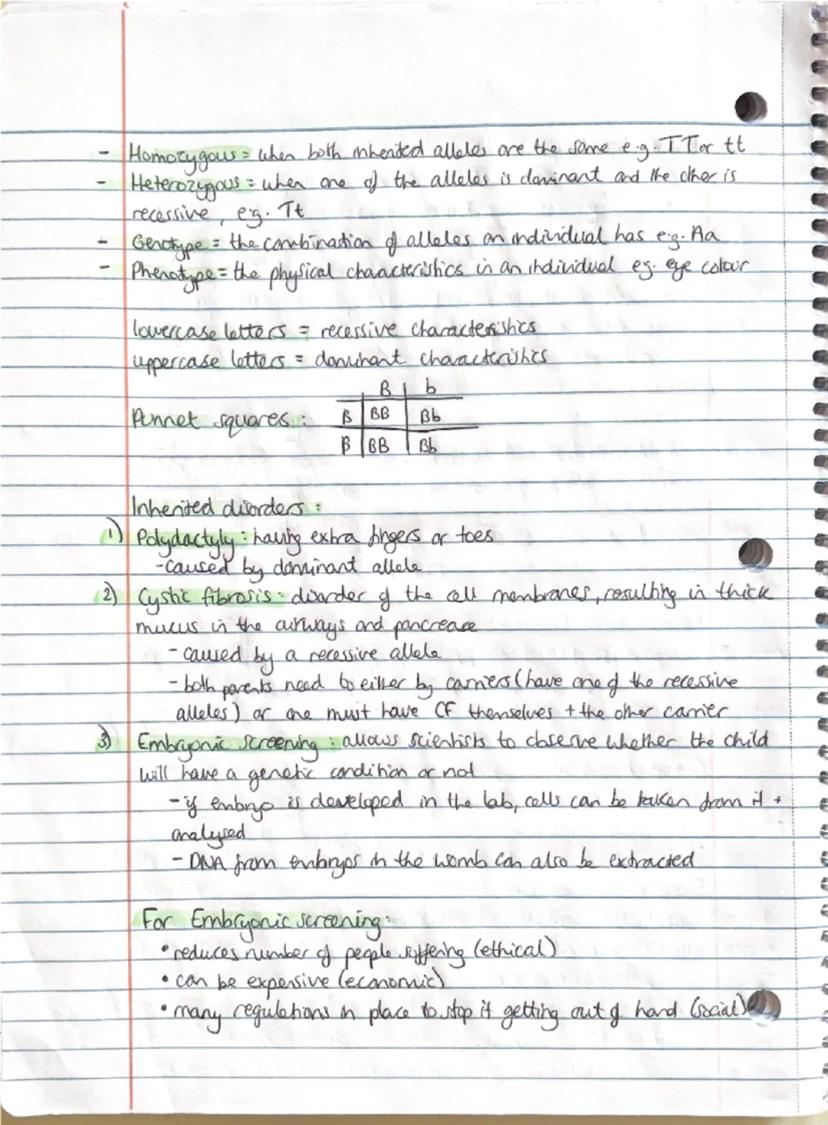 - Homozygous = when both inherited alleles are the same e.g. TT or tt
- Heterozygous = when one of the alleles is dominant and the other is
recessive, e.g. Tt
- Genotype = the combination of alleles an individual has e.g. Aa
- Phenotype = the physical characteristics in an individual eg. eye colour
lowercase letters = recessive characteristics
uppercase letters = dominant characteristics
B b
Punnet squares : B BB Bb
B BB Bb
Inherited disorders :
1) Polydactyly : having extra fingers or toes
-caused by dominant allele
2) Cystic fibrosis : disorder of the cell membranes, resulting in thick
mucus in the airways and pancrease
- caused by a recessive allele
- both parents need to either by carriers (have one of the recessive
alleles) or one must have CF themselves + the other carrier
3) Embryonic screening : allows scientists to observe whether the child
will have a genetic condition or not
- if embryo is developed in the lab, cells can be taken from it +
analysed
- DNA from embryos in the womb can also be extracted
For Embryonic screening:
• reduces number of people suffering (ethical)
• can be expensive (economic)
• many regulations in place to stop it getting out of hand (social)